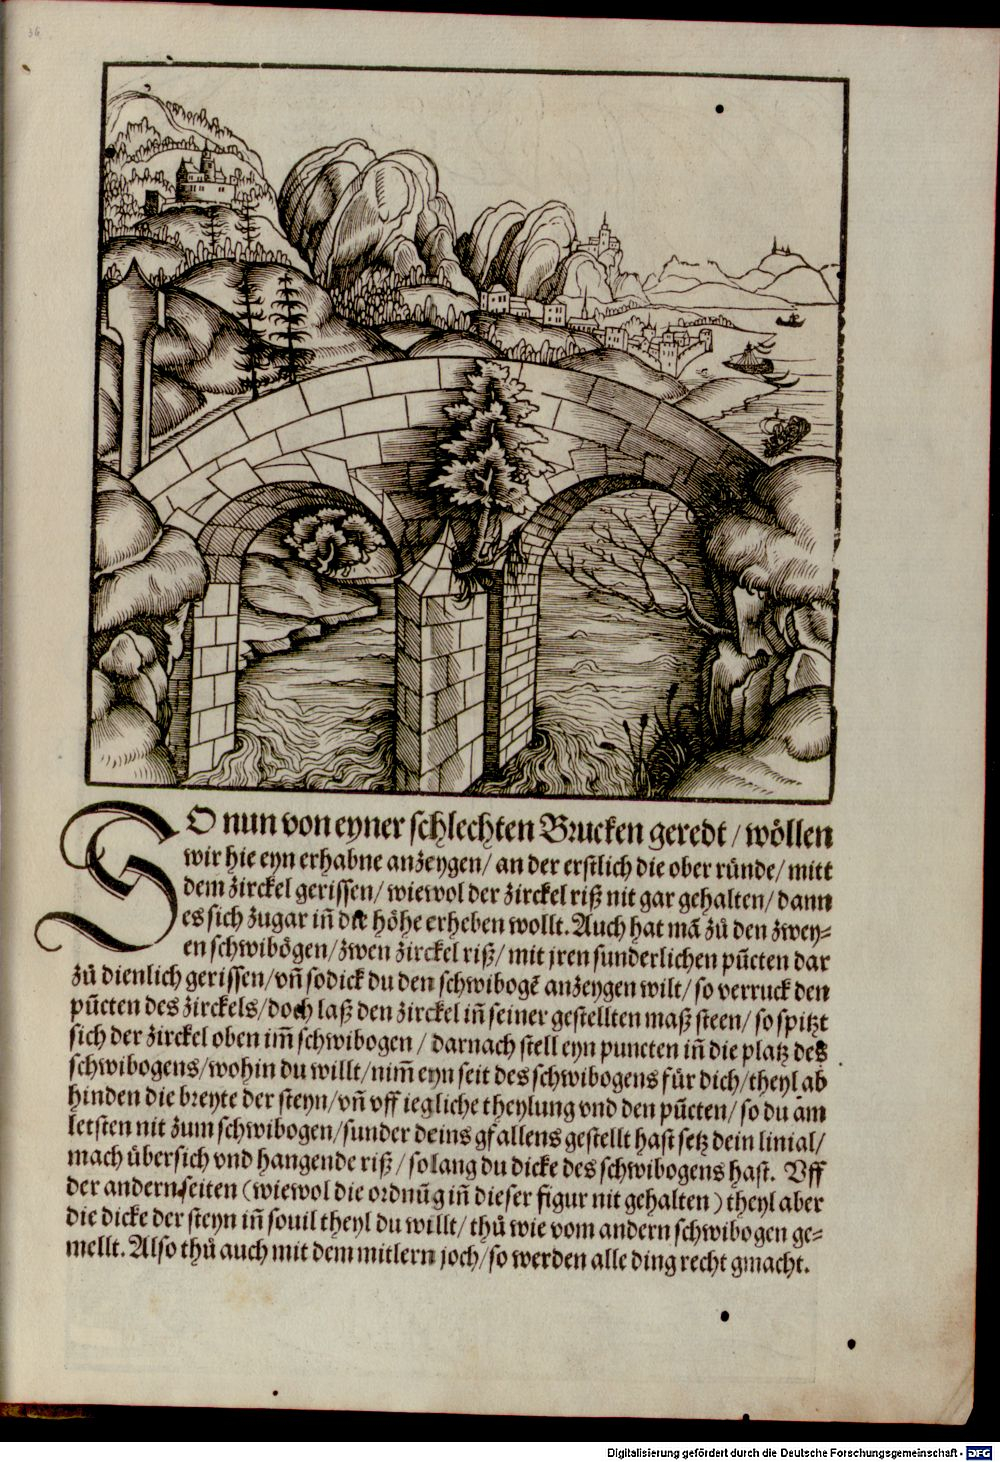 SO nun von eyner schlechten Brucken geredt / wöllen
wir hie eyn erhabne anzeygen / an der erstlich die ober ründe / mitt
dem zirckel gerissen / wiewol der zirckel riß nit gar gehalten / dann
es sich zugar iñ die höhe erheben wollt. Auch hat mã zů den zwey⸗
en schwibögen / zwen zirckel riß / mit jren sunderlichen pũcten dar
zů dienlich gerissen / vñ sodick du den schwibogẽ anzeygen wilt / so verruck den
pũcten des zirckels / doch laß den zirckel iñ seiner gestellten maß steen / so spitzt
sich der zirckel oben im̃ schwibogen / darnach stell eyn puncten iñ die platz des
schwibogens / wohin du willt / nim̃ eyn seit des schwibogens für dich / theyl ab
hinden die breyte der steyn / vñ vff iegliche theylung vnd den pũcten / so du am
letsten nit zum schwibogen / sunder deins gfallens gestellt hast setz dein linial /
mach übersich vnd hangende riß / solang du dicke des schwibogens hast. Vff
der andern seiten (wiewol die ordnũg iñ dieser figur nit gehalten) theyl aber
die dicke der steyn iñ souil theyl du willt / thů wie vom andern schwibogen ge⸗
mellt. Also thů auch mit dem mitlern joch / so werden alle ding recht gmacht.
Digitalisierung gefördert durch die Deutsche Forschungsgemeinschaft - DFG